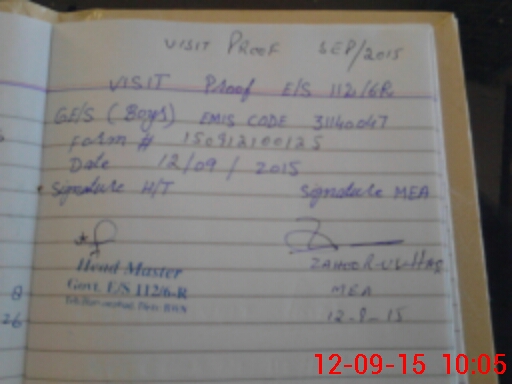 VISIT PROOF SEP/2015
VISIT Proof E/S 112/6R
GE/S (Boys) EMIS CODE 31140047
Form # 150912100125
Date 12/09/2015
Signature H/T Signature MEA
Head Master
Govt. E/S 112/6-R
ZAHOOR-UL-HAQ
MEA
12-9-15
8
26
12-09-15 10:05